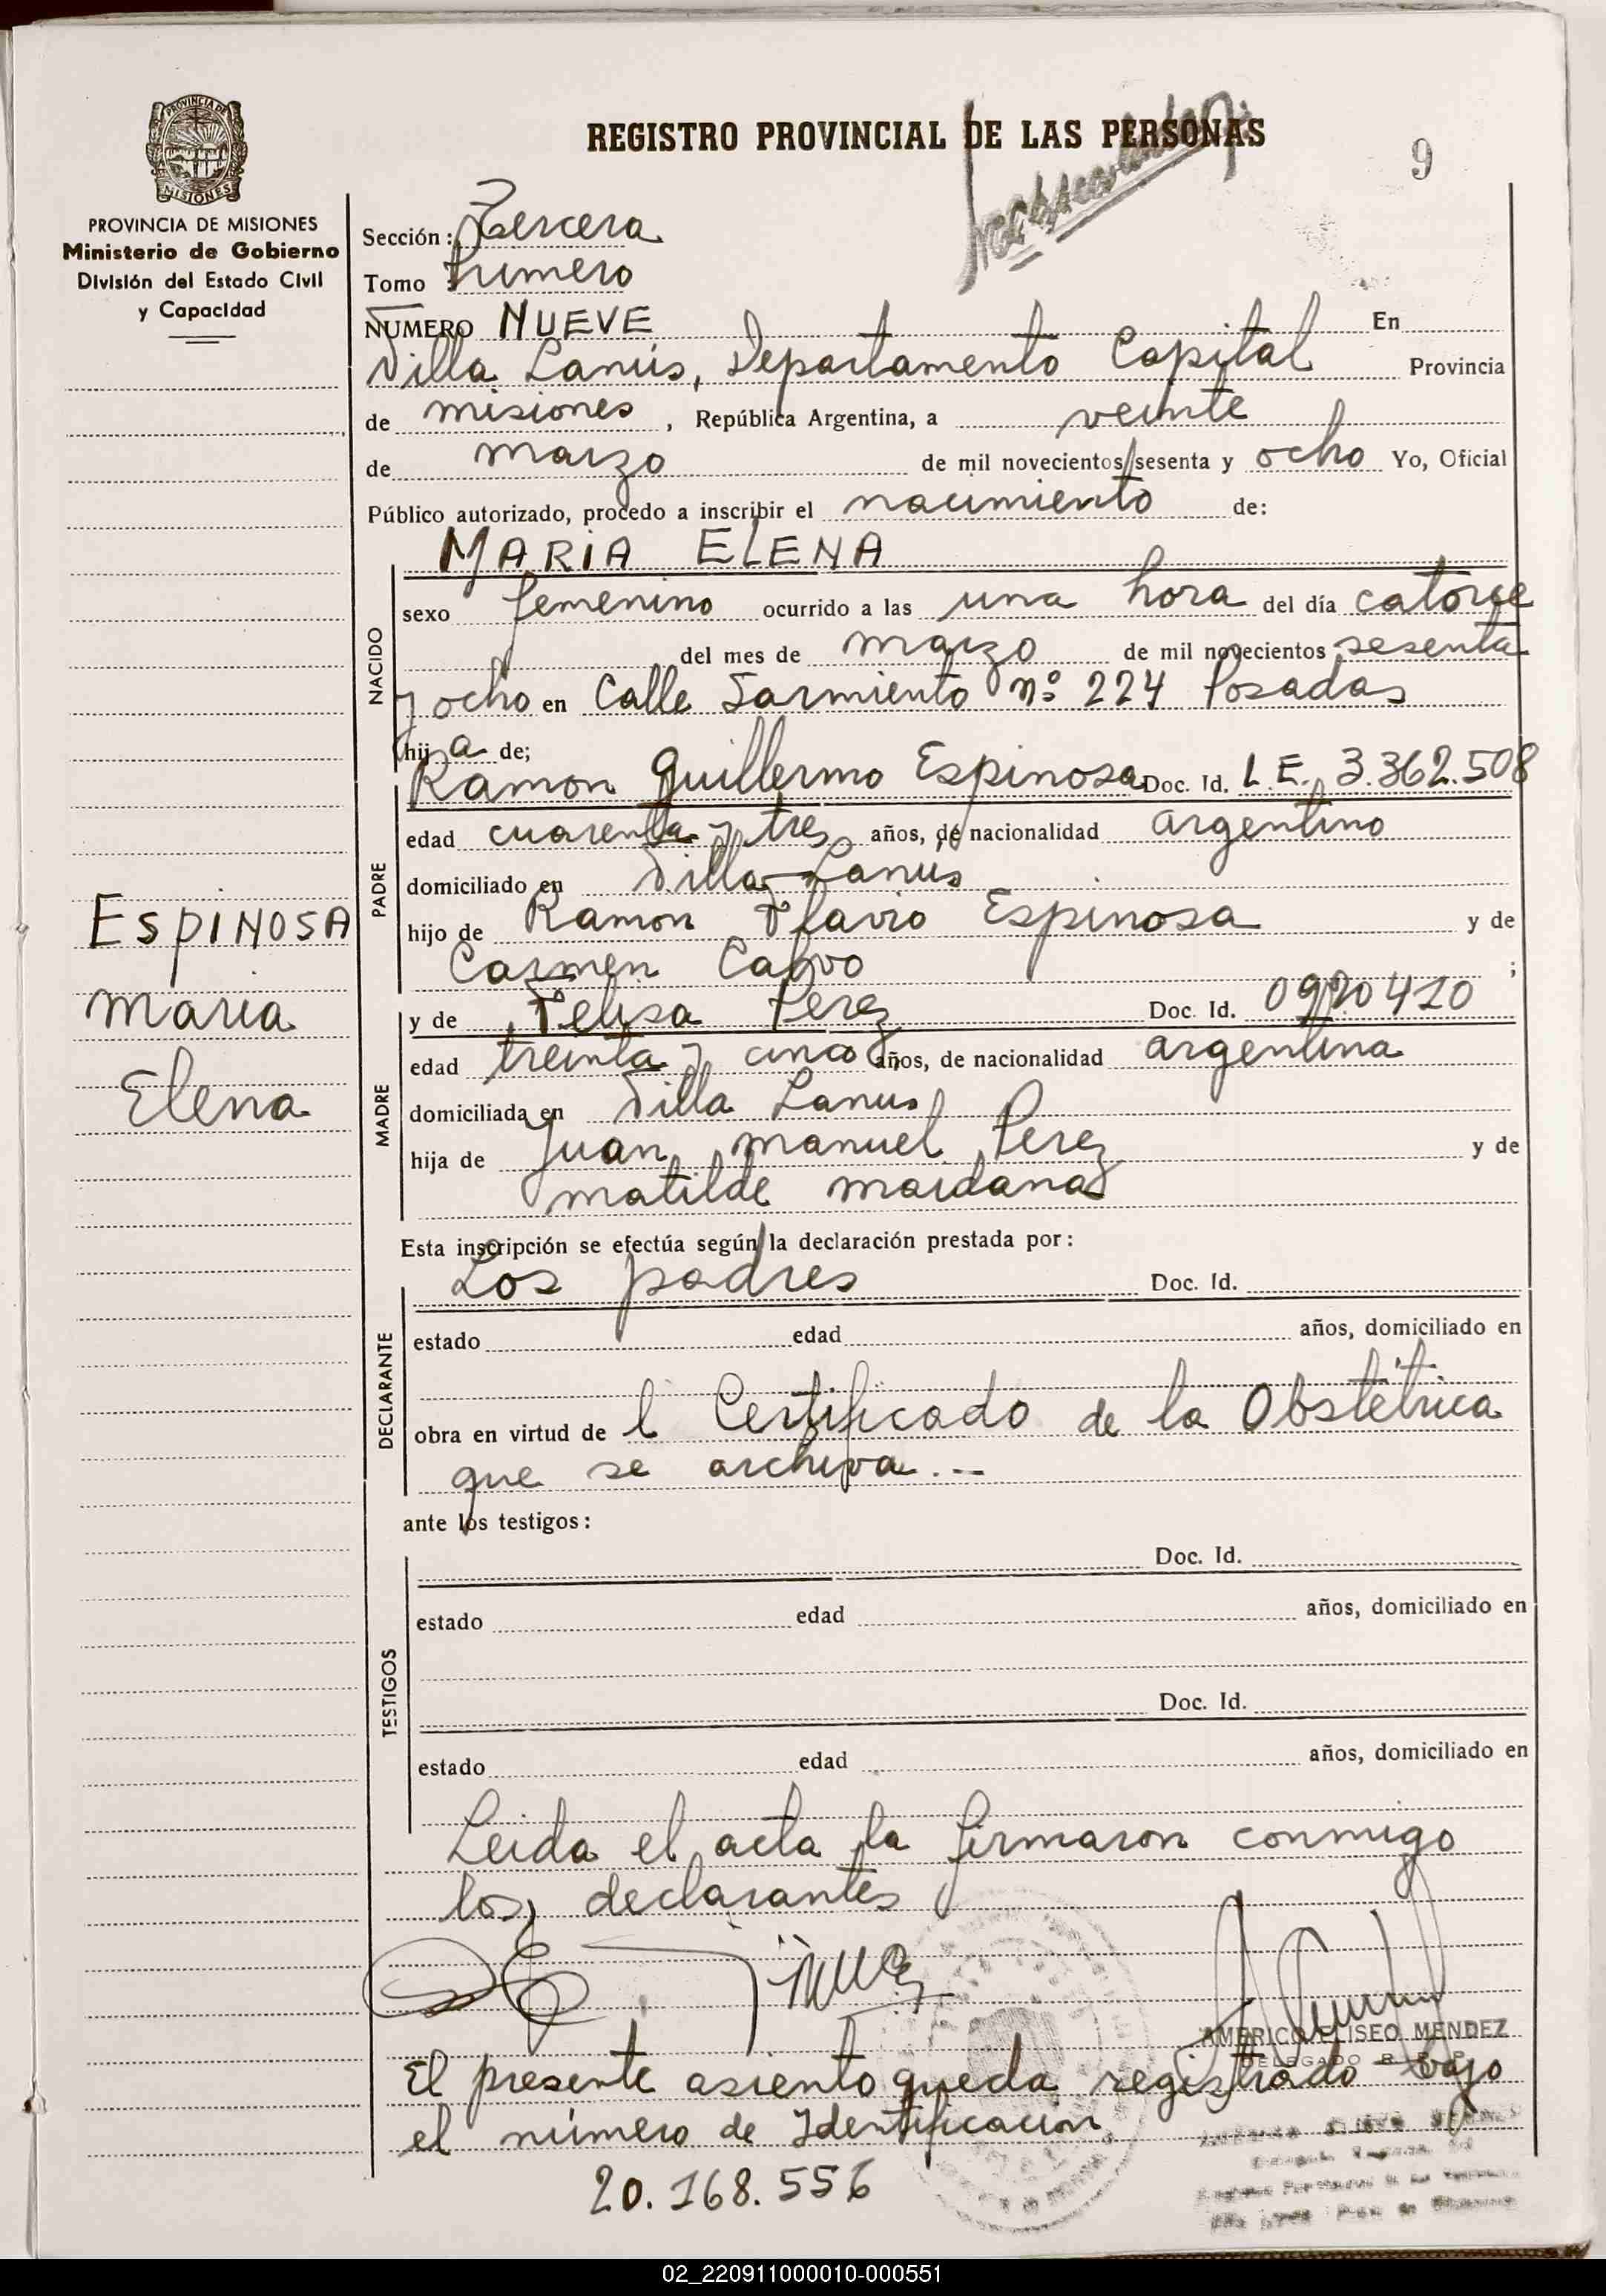 PROVINCIA DE
MISIONES
PROVINCIA DE MISIONES
Ministerio de Gobierno
División del Estado Civil
y Capacidad
REGISTRO PROVINCIAL DE LAS PERSONAS
9
Sección: Tercera
Tomo Primero
NUMERO NUEVE En
Villa Lanús, Departamento Capital Provincia
de misiones, República Argentina, a veinte
de marzo de mil novecientos sesenta y ocho Yo, Oficial
Público autorizado, procedo a inscribir el nacimiento de:
NACIDO
MARIA ELENA
sexo femenino ocurrido a las una hora del día catorce
del mes de marzo de mil novecientos sesenta
y ocho en Calle Sarmiento nº 224 Posadas
hija de;
PADRE
Ramon Guillermo Espinosa Doc. Id. L.E. 3.362.508
edad cuarenta y tres años, de nacionalidad argentino
domiciliado en Villa Lanus
hijo de Ramon Flavio Espinosa y de
Carmen Calvo ;
MADRE
y de Felisa Perez Doc. Id. 0920410
edad treinta y cinco años, de nacionalidad argentina
domiciliada en Villa Lanus
hija de Juan manuel Perez y de
matilde maidana
ESPINOSA
Maria
Elena
Esta inscripción se efectúa según la declaración prestada por:
DECLARANTE
Los padres Doc. Id.
estado edad años, domiciliado en
obra en virtud de l Certificado de la Obstétrica
que se archiva.--
ante los testigos:
TESTIGOS
Doc. Id.
estado edad años, domiciliado en
Doc. Id.
estado edad años, domiciliado en
Leida el acta la firmaron conmigo
los declarantes
AMERICO ELISEO MENDEZ
DELEGADO R. P. P.
El presente asiento queda registrado bajo
el número de Identificación
20.168.556
02_220911000010-000551